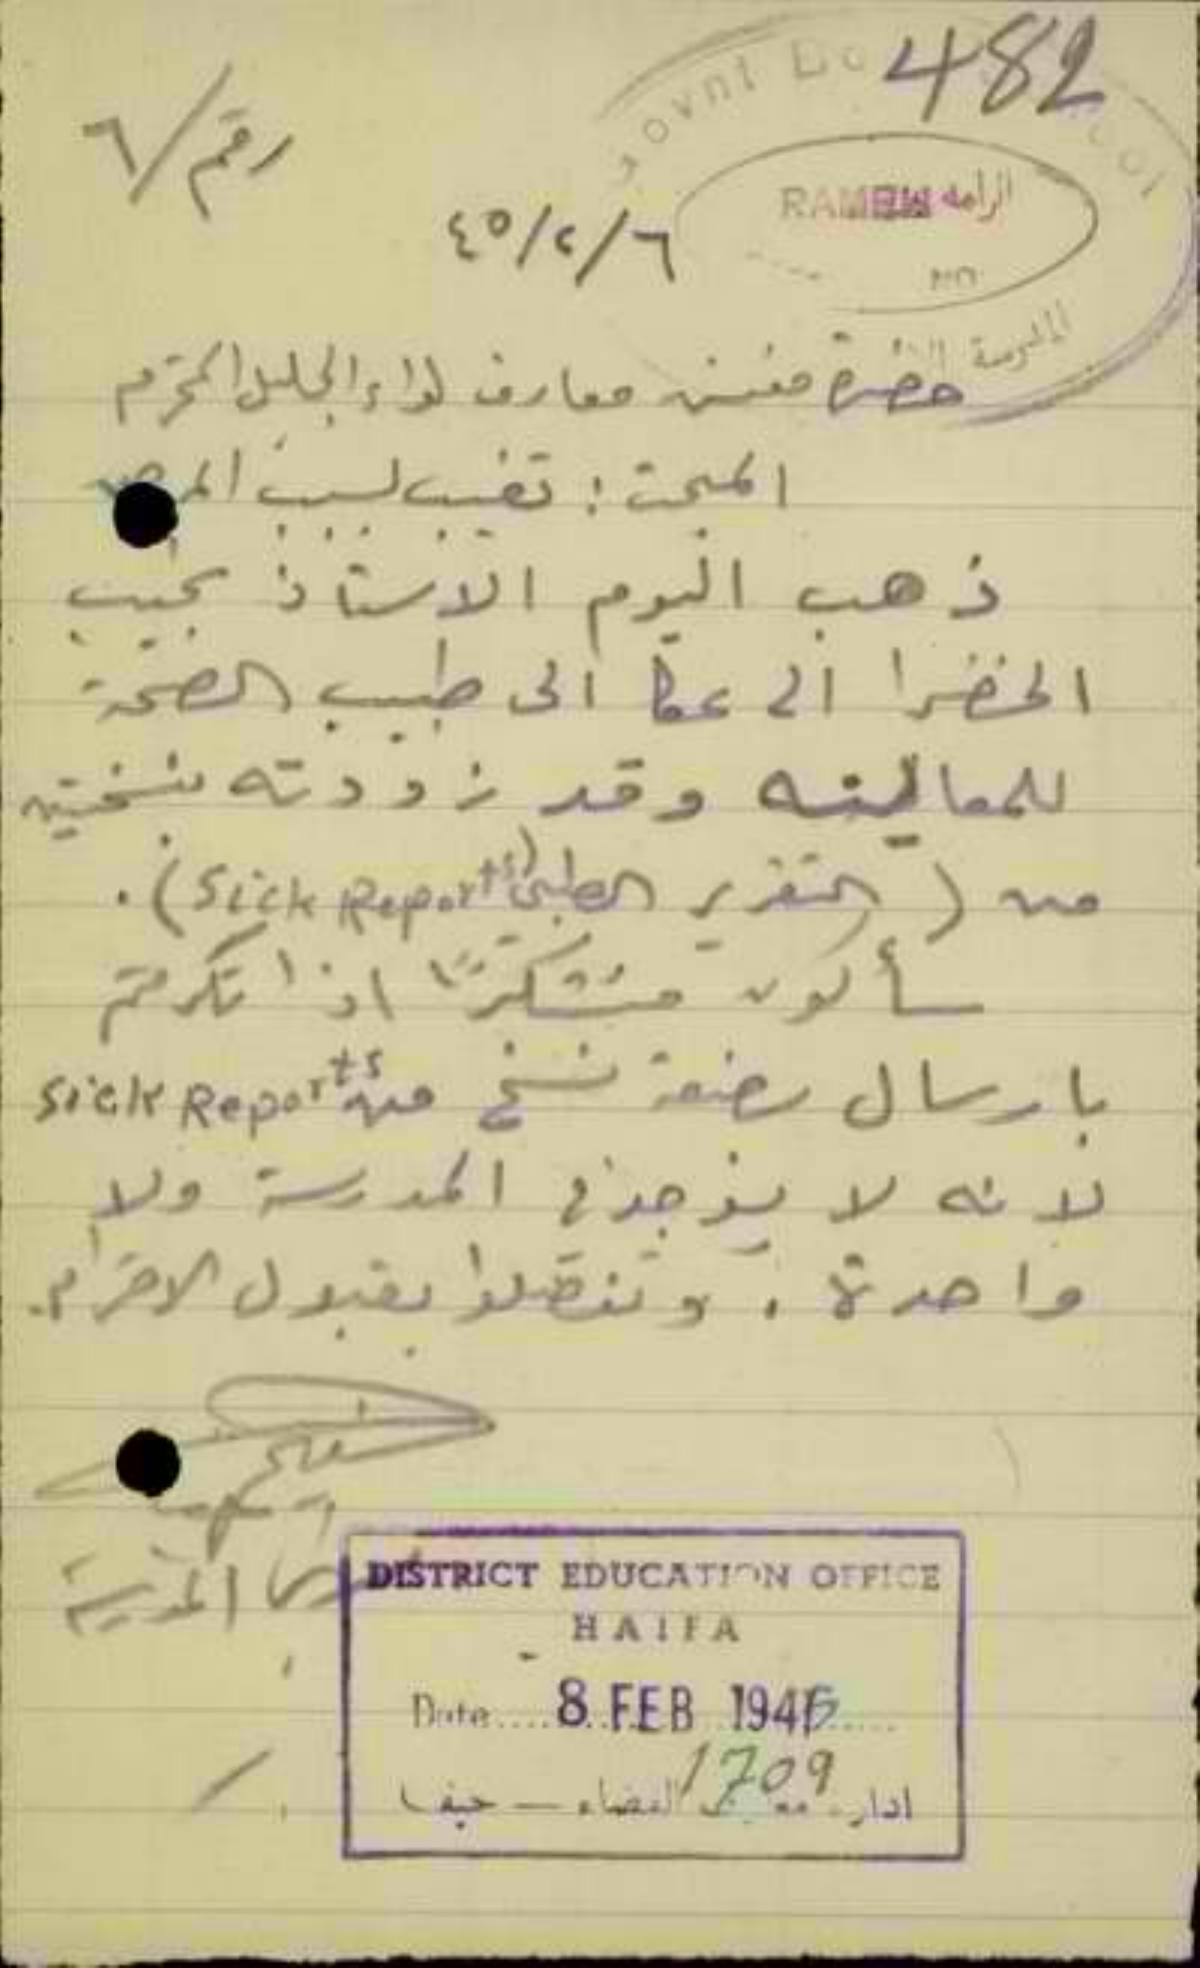 482
رقم/٦
Govnt Bo
RAMEH الرامه
المدرسة
٤٥/٢/٦
حضرة مفتش معارف لواء الجليل المحترم
المبحث : تغيب لسبب المرض
ذهب اليوم الاستاذ نجيب
الخضرا الى عكا الى طبيب الصحة
للمعاينه وقد زودته بنسختين
من ( التقرير الطبي Sick Reports) .
سأكون متشكرًا اذا تكرمتم
بارسال بضعة نسخ من Sick Reports
لانه لا يوجد في المدرسة ولا
واحدة . وتفضلوا بقبول الاحترام.
المدرسة
DISTRICT EDUCATION OFFICE
HAIFA
Date.... 8 FEB 1945.....
1709
القضاء — حيفا